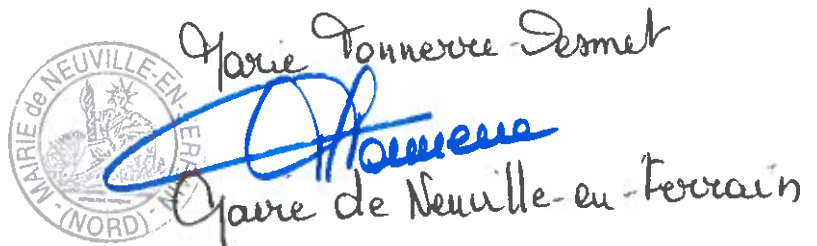 Marie Tonnerre-Desmet
MAIRIE de NEUVILLE-EN-FERRAIN
(NORD)
Maire de Neuville-en-Ferrain